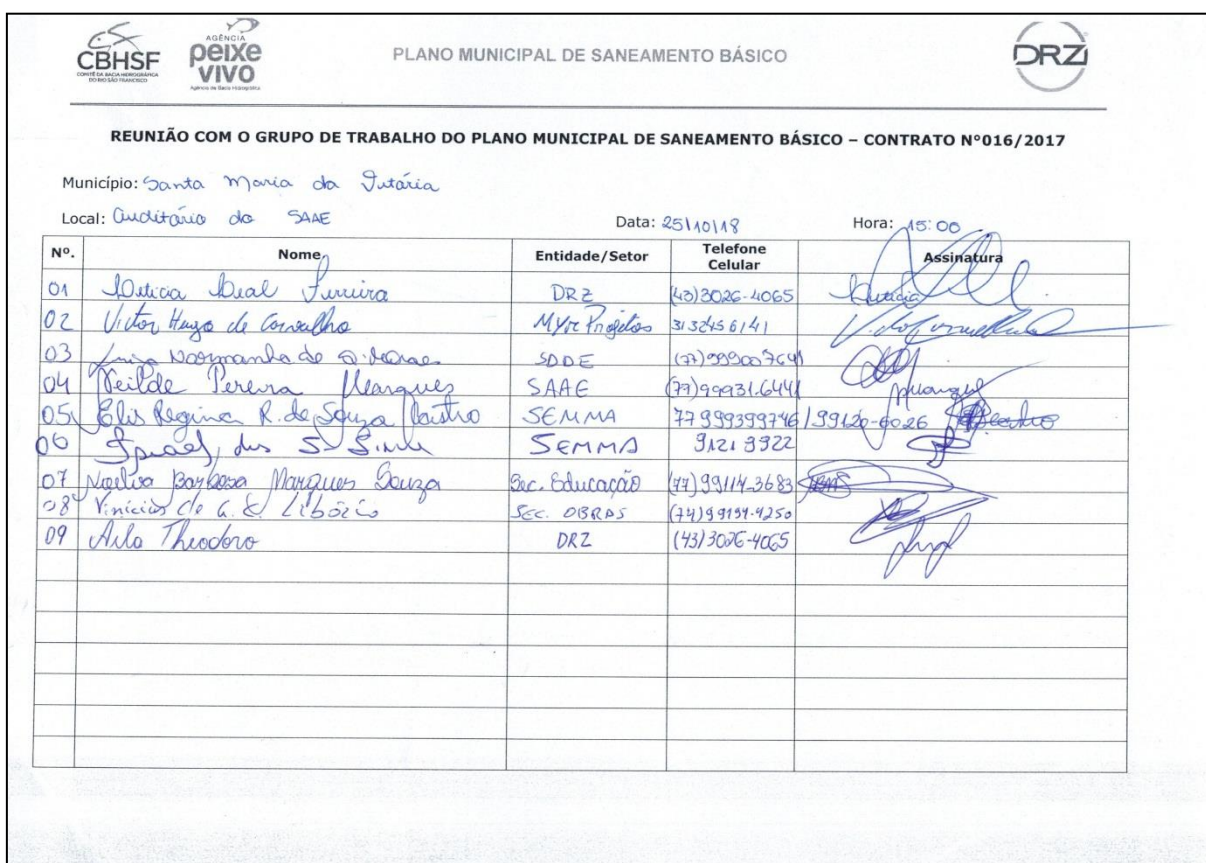 CBHSF
COMITÊ DA BACIA HIDROGRÁFICA
DO RIO SÃO FRANCISCO
AGÊNCIA
peixe
vivo
Agência de Bacia Hidrográfica
PLANO MUNICIPAL DE SANEAMENTO BÁSICO
DRZ
REUNIÃO COM O GRUPO DE TRABALHO DO PLANO MUNICIPAL DE SANEAMENTO BÁSICO – CONTRATO Nº016/2017
Município: Santa Maria da
Local: Auditório do SAAE Data: 25/10/18 Hora: 15:00
Nº. Nome Entidade/Setor Telefone Celular Assinatura
01 Leal DRZ (43)3026-4065
02 Victor Hugo de Carvalho Myr Projetos
03 Normanha de (77)999007641
04 Neilde Pereira Marques SAAE (77)99931.6441
05 Elis Regina R. de Souza Castro SEMMA 77 999399746/99120-6026
06 dos S. SEMMA 9121 9922
07 Barbosa Marques Souza Sec. Educação (77)99114-3683
08 Vinicius de Libório SEC. OBRAS
09 Theodoro DRZ (43)3026-4065